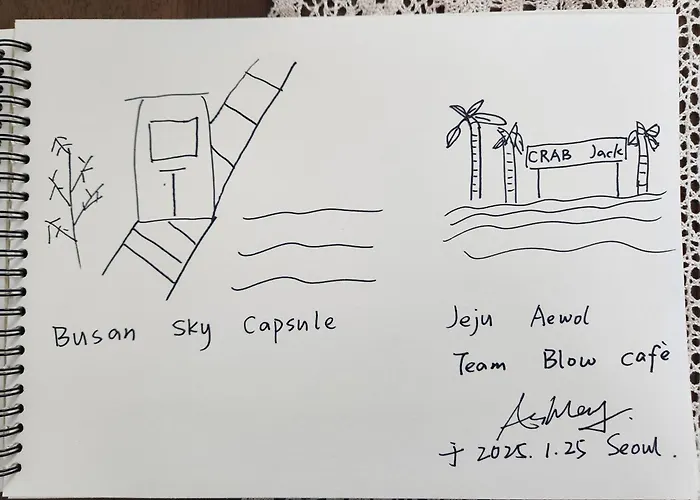 CRAB Jack
Busan Sky Capsule
Jeju Aewol
Team Blow cafè
Ashley.
于 2025.1.25 Seoul.